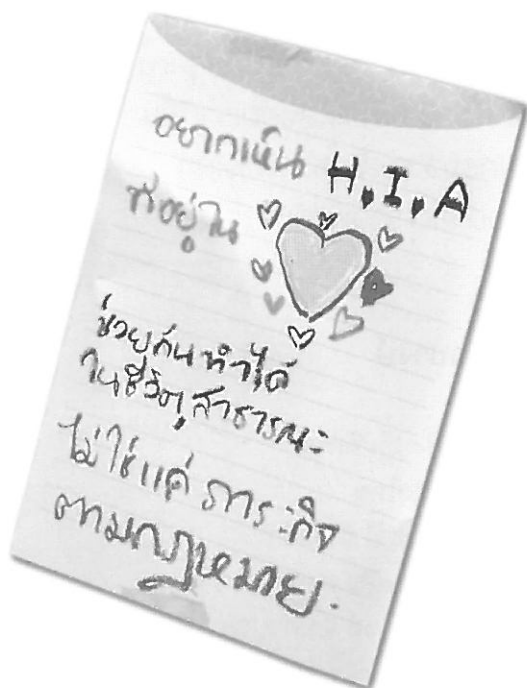 อยากเห็น H.I.A
ที่อยู่ใน
ช่วยกันทำได้
ในชีวิตสาธารณะ
ไม่ใช่แค่ ภาระกิจ
ตามกฎหมาย.